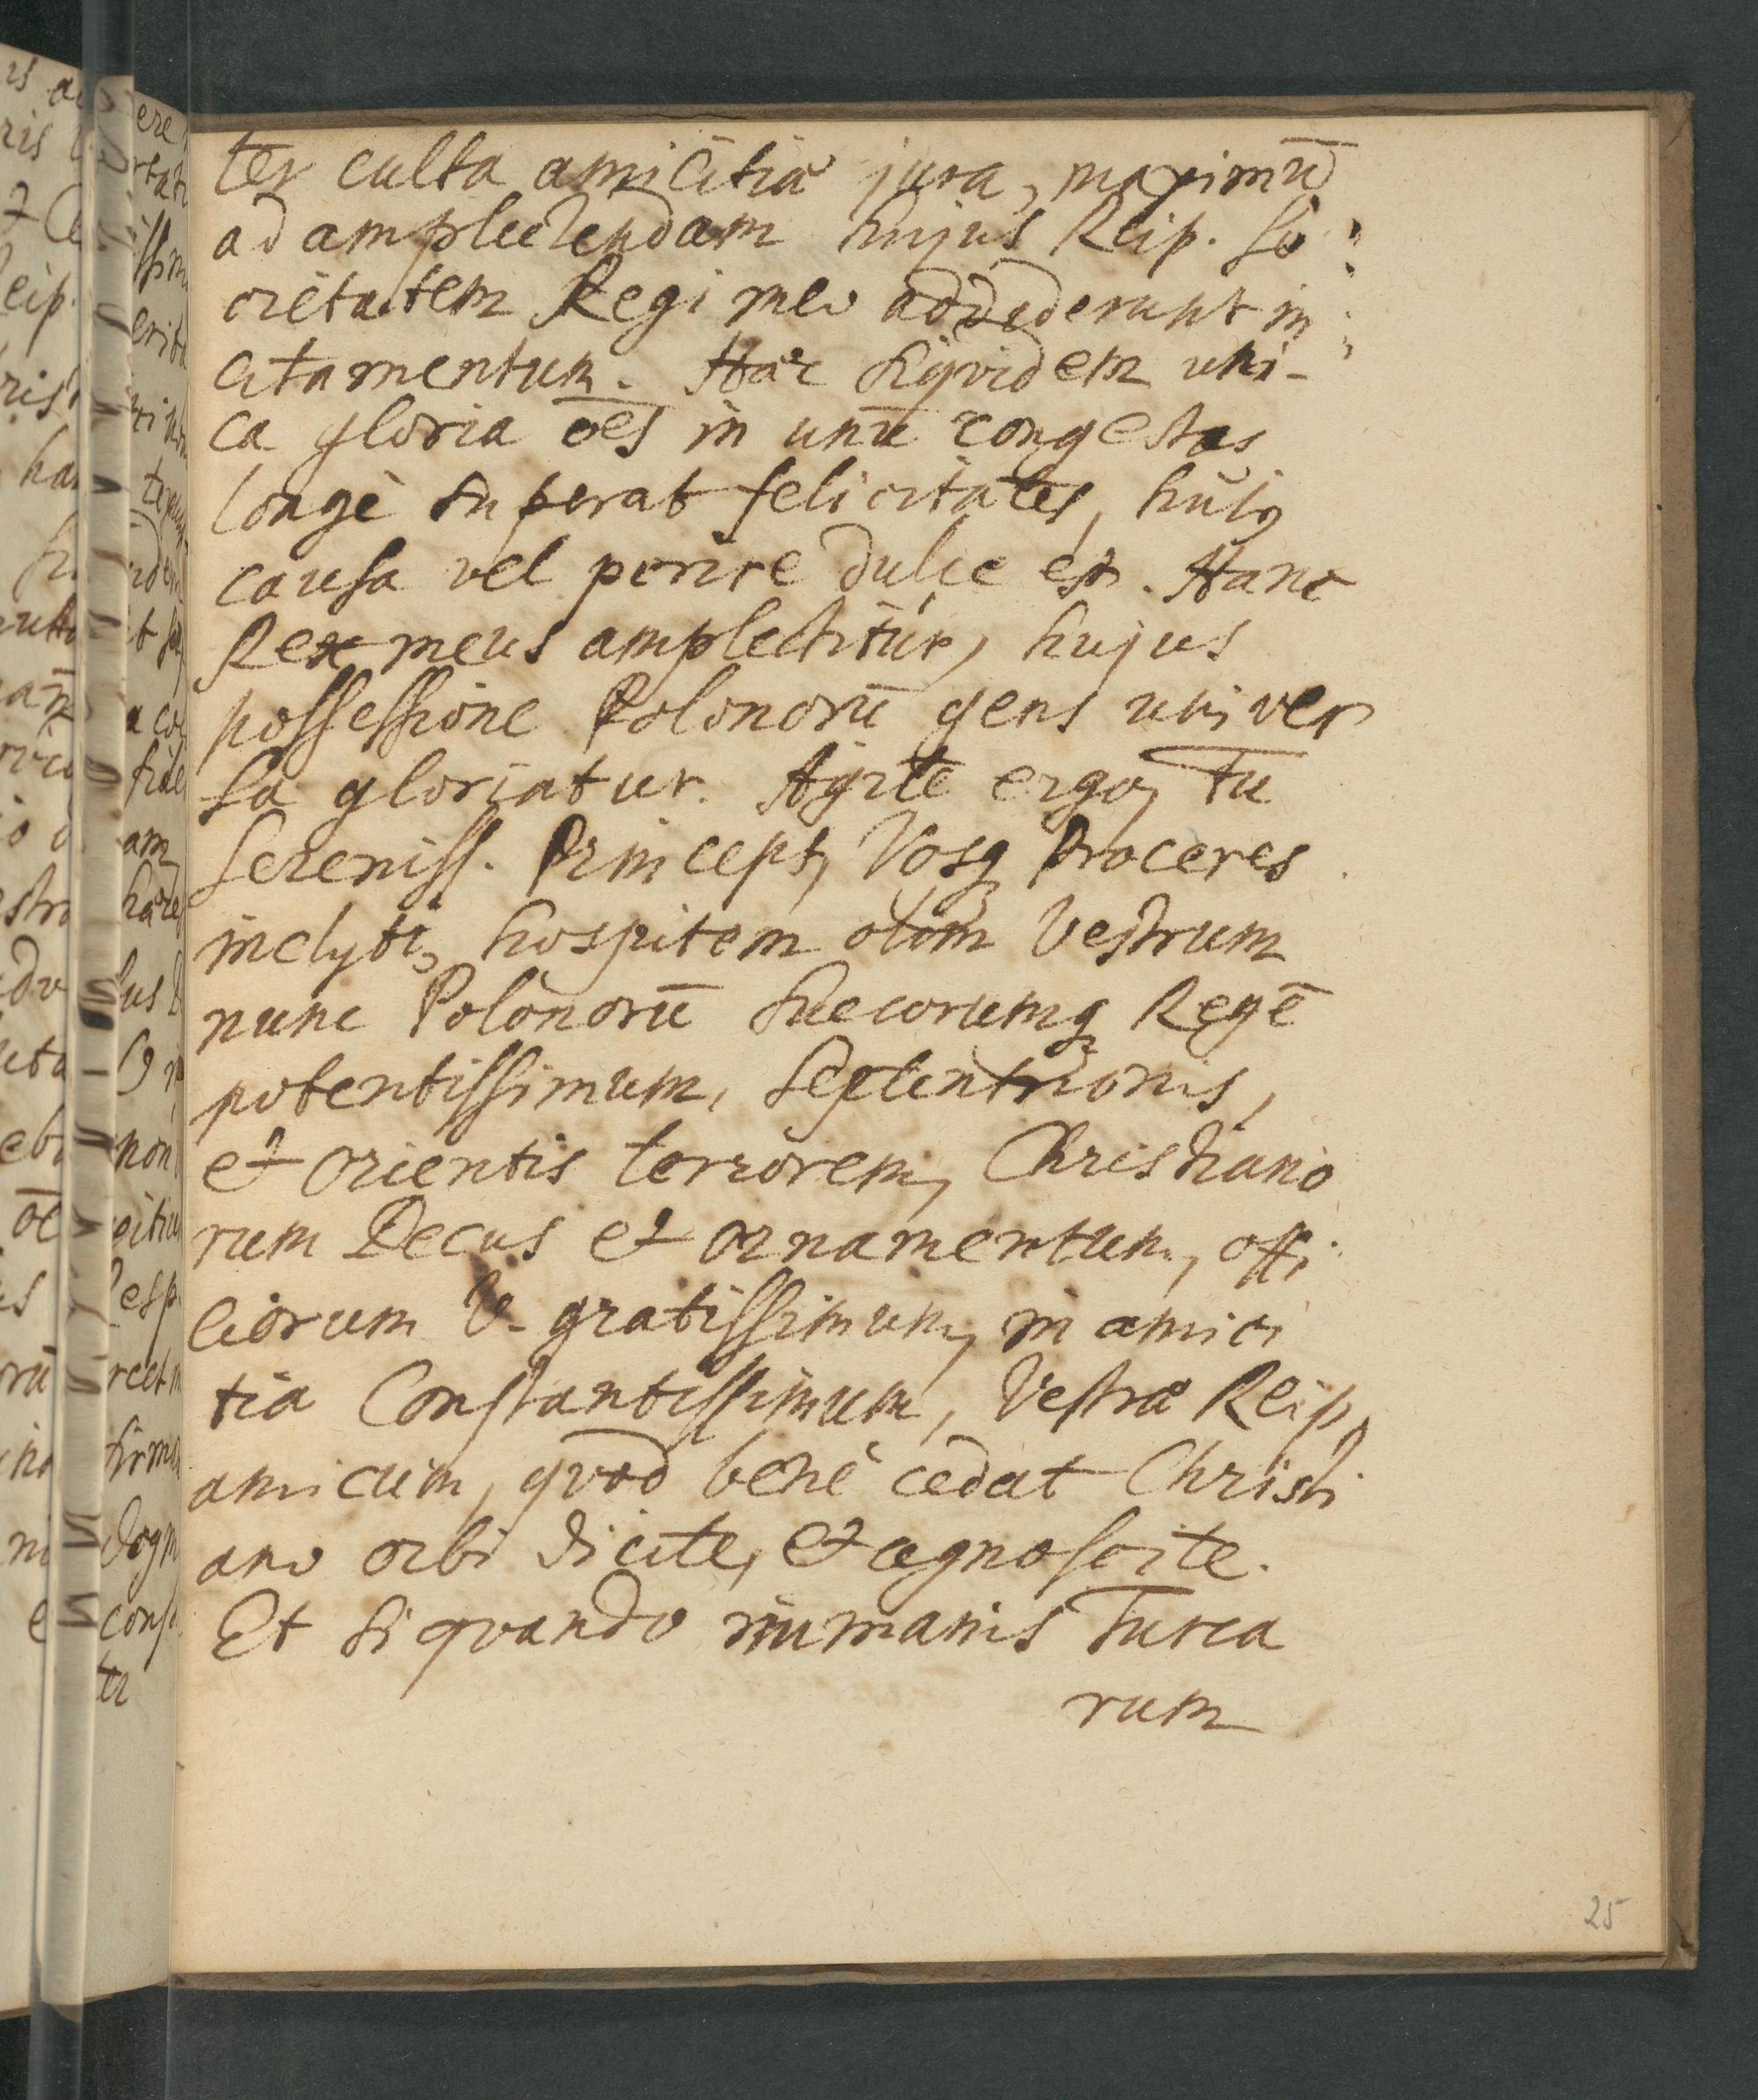 ter culta amicitiæ jura, maximū
ad amplectendam hujus Reip. so:
cietatem Regi meo addiderunt in:
citamentum. Hæc siqvidem uni-
ca gloria oēs in unū congestas
longè superat felicitates, huiꝰ
causa vel perire dulce est. Hanc
Rex meus amplectitur, hujus
possessione Polonorū gens univer
sa gloriatur. Agite ergo, Tu
Sereniss. Princeps, Vosq Proceres
inclyti, hospitem olim Vestrum
nunc Polonorū Suecorumq Regē
potentissimum, Septentrionis,
et Orientis terrorem, Christiano
rum Decus et ornamentum, offi
ciorum V. gratissimum, in amici
tia Constantissimum, Vestræ Reip.
amicum, qvod benè cedat Christi
ano orbi dicite, et agnoscite.
Et si qvando immanis Turca
rum
25